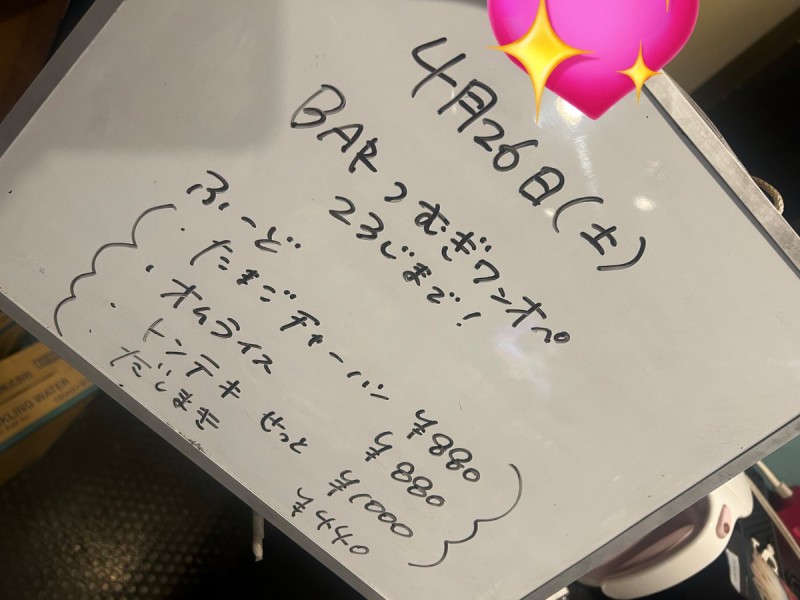 4月26日(土)
BAR つむぎワンオペ
23じまで!
ふーど
・たまごチャーハン ¥880
・オムライス ¥880
・トンテキ せっと ¥1000
・だしまき ¥440
KLING WATER